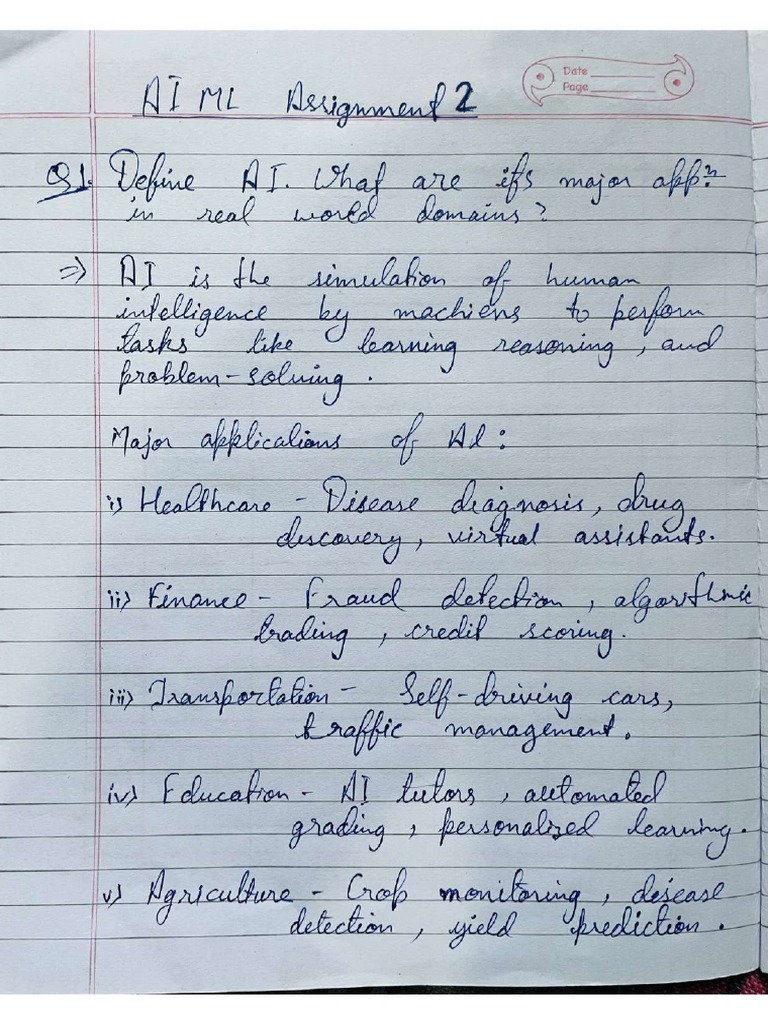 Date
Page
AI ML Assignment 2
Q1. Define AI. What are it's major appⁿ.
in real world domains?
=> AI is the simulation of human
intelligence by machiens to perform
tasks like learning reasoning, and
problem-solving.
Major applications of AI:
i) Healthcare - Disease diagnosis, drug
discovery, virtual assistants.
ii) Finance - Fraud detection, algorithmic
trading, credit scoring.
iii) Transportation - Self-driving cars,
traffic management.
iv) Education - AI tutors, automated
grading, personalized learning.
v) Agriculture - Crop monitoring, disease
detection, yield prediction.